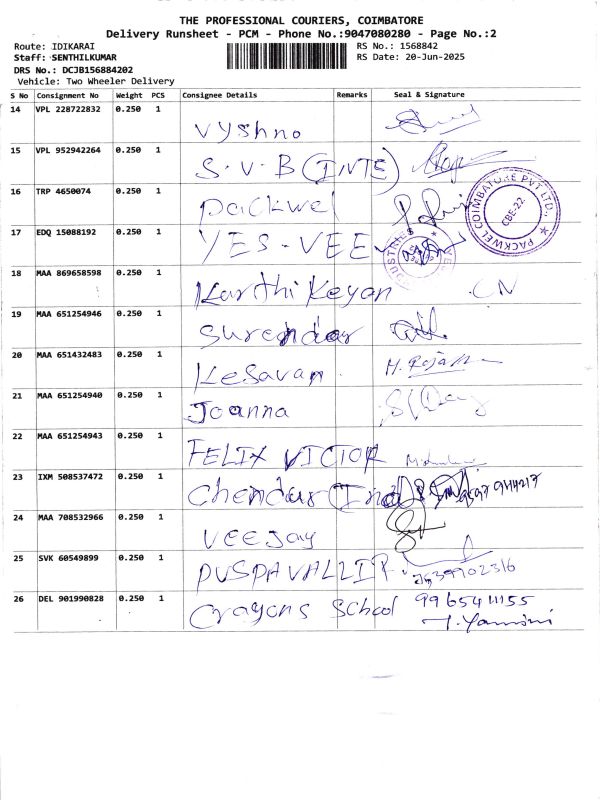 THE PROFESSIONAL COURIERS, COIMBATORE
Delivery Runsheet - PCM - Phone No.:9047080280 - Page No.:2
Route: IDIKARAI RS No.: 1568842
Staff: SENTHILKUMAR RS Date: 20-Jun-2025
DRS No.: DCJB156884202
Vehicle: Two Wheeler Delivery
S No Consignment No Weight PCS Consignee Details Remarks Seal & Signature
14 VPL 228722832 0.250 1 Vyshno
15 VPL 952942264 0.250 1 S.V.B (INTE)
16 TRP 4650074 0.250 1 Packwel
PACKWEL COIMBATORE PVT LTD. CBE-22
17 EDQ 15088192 0.250 1 YES-VEE
18 MAA 869658598 0.250 1 Karthi Keyan
19 MAA 651254946 0.250 1 Surendar
20 MAA 651432483 0.250 1 Kesavan
21 MAA 651254940 0.250 1 Joanna
22 MAA 651254943 0.250 1 FELIX VICTOR
23 IXM 508537472 0.250 1 Chendur (Ind)
24 MAA 708532966 0.250 1 VEEJAY
25 SVK 60549899 0.250 1 PUSPAVALLI P
26 DEL 901990828 0.250 1 Crayons School